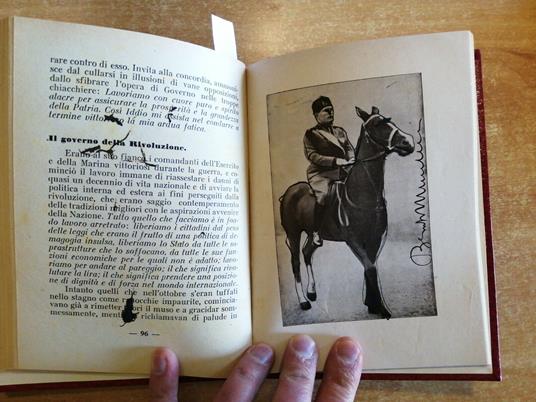 rare contro di esso. Invita alla concordia, ammoni-
sce dal cullarsi in illusioni di vane opposizioni
dallo sfibrare l'opera di Governo nelle troppe
chiacchiere: Lavoriamo con cuore puro e spirito
alacre per assicurare la prosperità e la grandezza
della Patria. Così Iddio mi assista nel condurre a
termine vittorioso la mia ardua fatica.
Il governo della Rivoluzione.
Erano al suo fianco i comandanti dell'Esercito
e della Marina vittoriosi durante la guerra, e co-
minciò il lavoro immane di riassestare i danni di
quasi un decennio di vita nazionale e di avviare la
politica interna ed estera ai fini perseguiti dalla
rivoluzione, che erano saldo contemperamento
delle tradizioni migliori con le aspirazioni avvenire
della Nazione. Tutto quello che facciamo è in fon-
do lavoro arretrato: liberiamo i cittadini dal peso
delle leggi che erano il frutto di una politica di de-
magogia insulsa, liberiamo lo Stato da tutte le so-
prastrutture che lo soffocano, da tutte le sue
funzioni economiche per le quali non è adatto; lavo-
riamo per andare al pareggio; il che significa riva-
lutare la lira; il che significa prendere una posizio-
ne di dignità e di forza nel mondo internazionale.
Intanto quelli che nell'ottobre s'eran tuffati
nello stagno come ranocchie impaurite, comincia-
vano già a rimetter fuori il muso e a gracidar som-
messamente, mentre richiamavan di palude in
— 96 —
Benito Mussolini